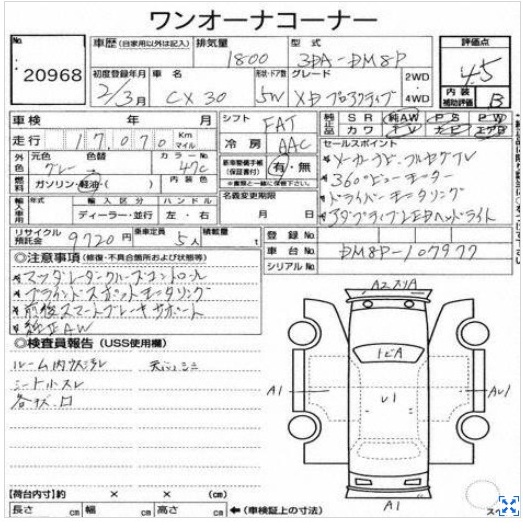 ワンオーナーコーナー
No.
20968
車歴 (自家用以外は記入)
排気量
1800
型式
3DA-DM8P
評価点
4.5
初度登録年月
2/3月
車名
CX30
形状・ドア数
5W
グレード
XD プロアクティブ
2WD
4WD
内装補助評価
B
車検 年 月
シフト
FAT
純正品
SR 純AW PS PW
カワ TV ナビ エアB
走行 17,070 Km マイル
冷房
AAC
セールスポイント
外色 元色 色替 カラーNo.
グレー 47C
新車整備手帳 (保証書付)
有・無
*メーカーナビ・フルセグTV
*360°ビューモニター
*ドライバーモニタリング
*アダプティブLEDヘッドライト
燃料 ガソリン・軽油・( ) 内装色
名義変更期限
月 日
輸入車用 年式 輸入区分 ハンドル
ディーラー・並行 左・右
リサイクル預託金 9720円 乗車定員 5人 積載量 t
登録No.
車台No. DM8P-107977
シリアルNo.
◎注意事項 (修復・不具合箇所および状態等)
*マツダレーダークルーズコントロール
*ブラインドスポットモニタリング
*前後スマートブレーキサポート
*純正AW
◎検査員報告 (USS使用欄)
ルーム内ウスヨゴレ 天バリシミ
シートスレ
A2スリA
トビA
A1
U1
AU1
A1
【荷台内寸】約 × × (cm)
長さ cm 幅 cm 高さ cm ←(車検証上の寸法)